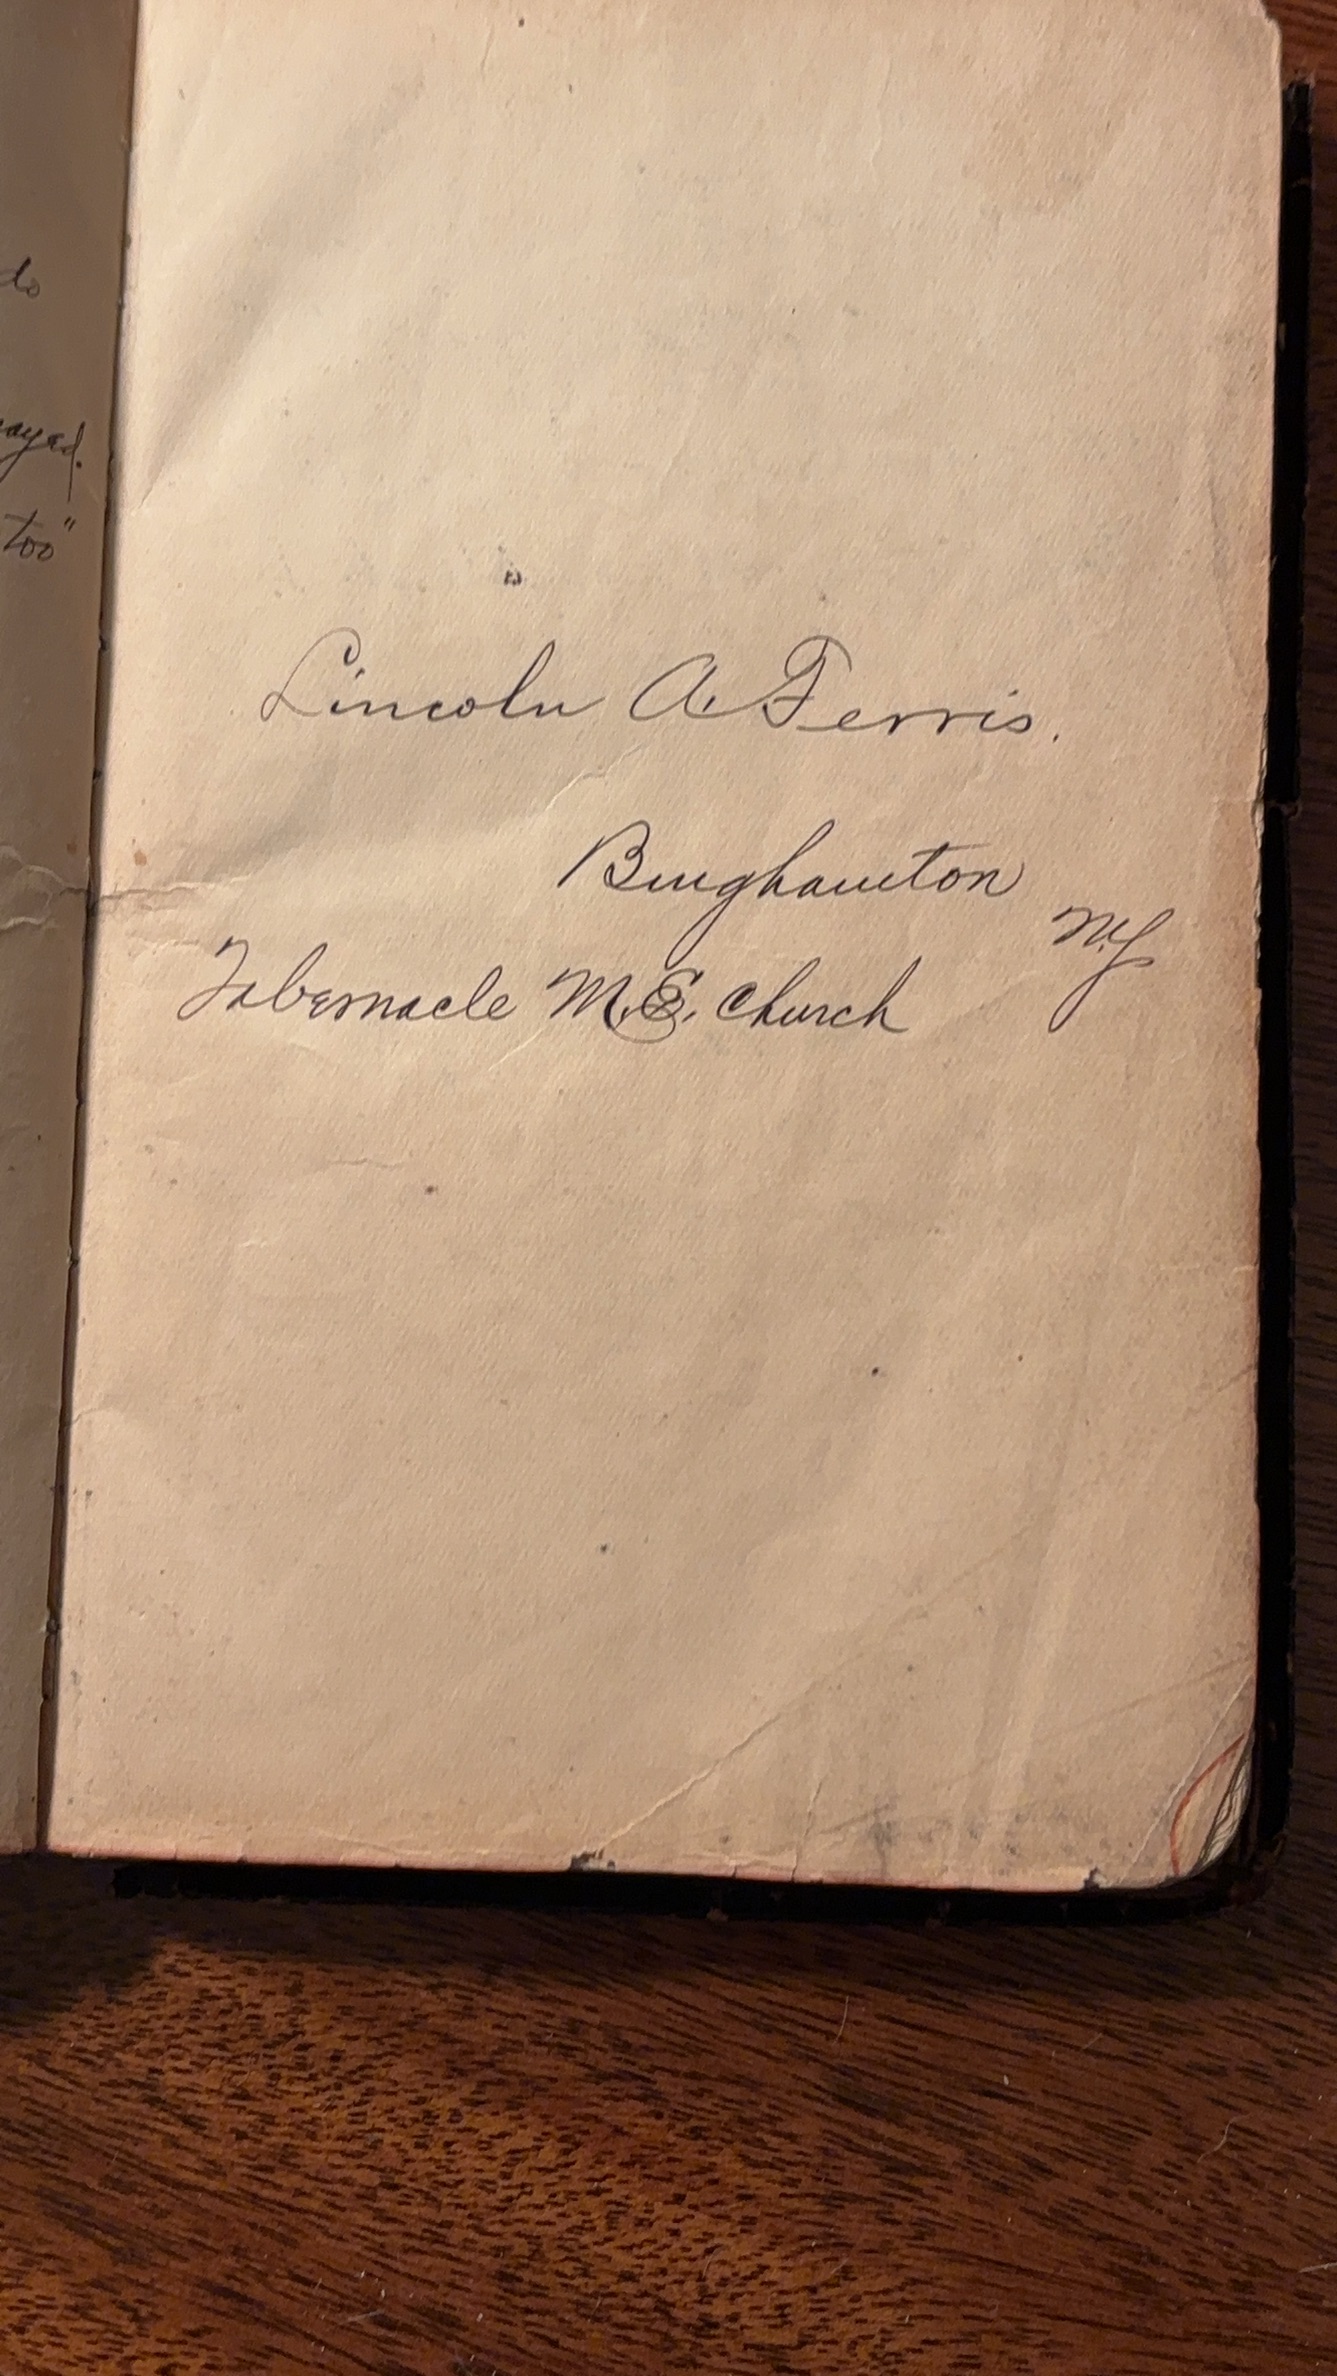 do
too"
Lincoln A. Ferris.
Binghamton
N.Y.
Tabernacle M.E. Church